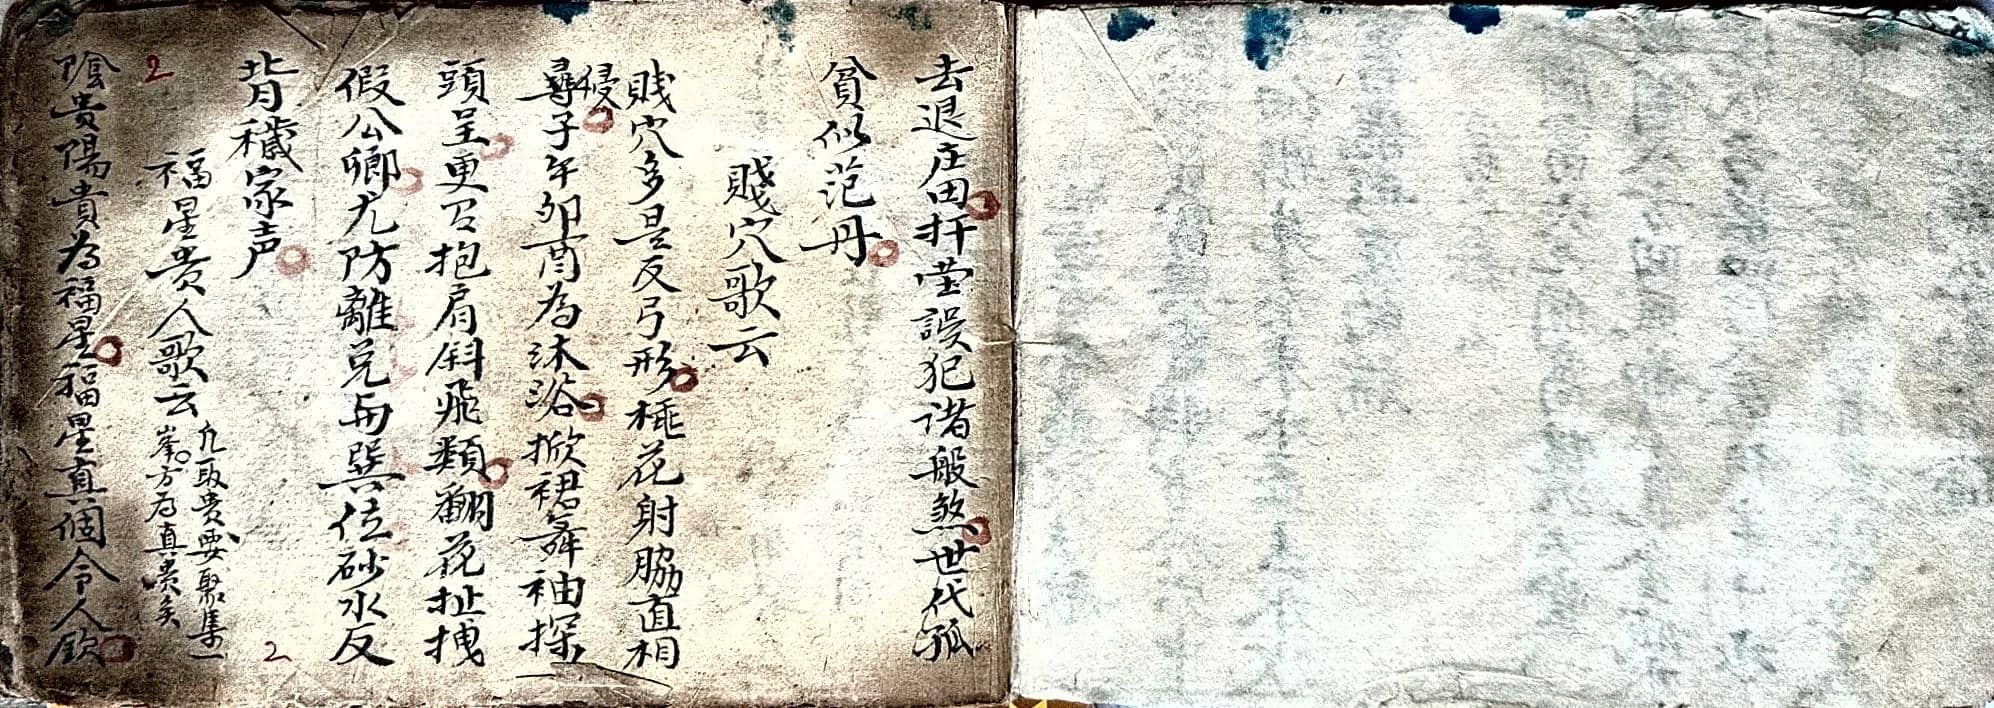 去退庄田扦茔誤犯諸般煞世代孤
貧似范丹
賤穴歌云
賎穴多是反弓形桃花射脇直相
侵
尋子午卯酉為沐浴掀裙舞袖探
頭呈更召抱肩斜飛類翻花扯拽
假公卿尤防離兑与巽位砂水反
背穢家声
福星贵人歌云
凢取贵要聚集一
峯方為真贵矣
2
陰貴陽貴為福星福星直個令人欽
2